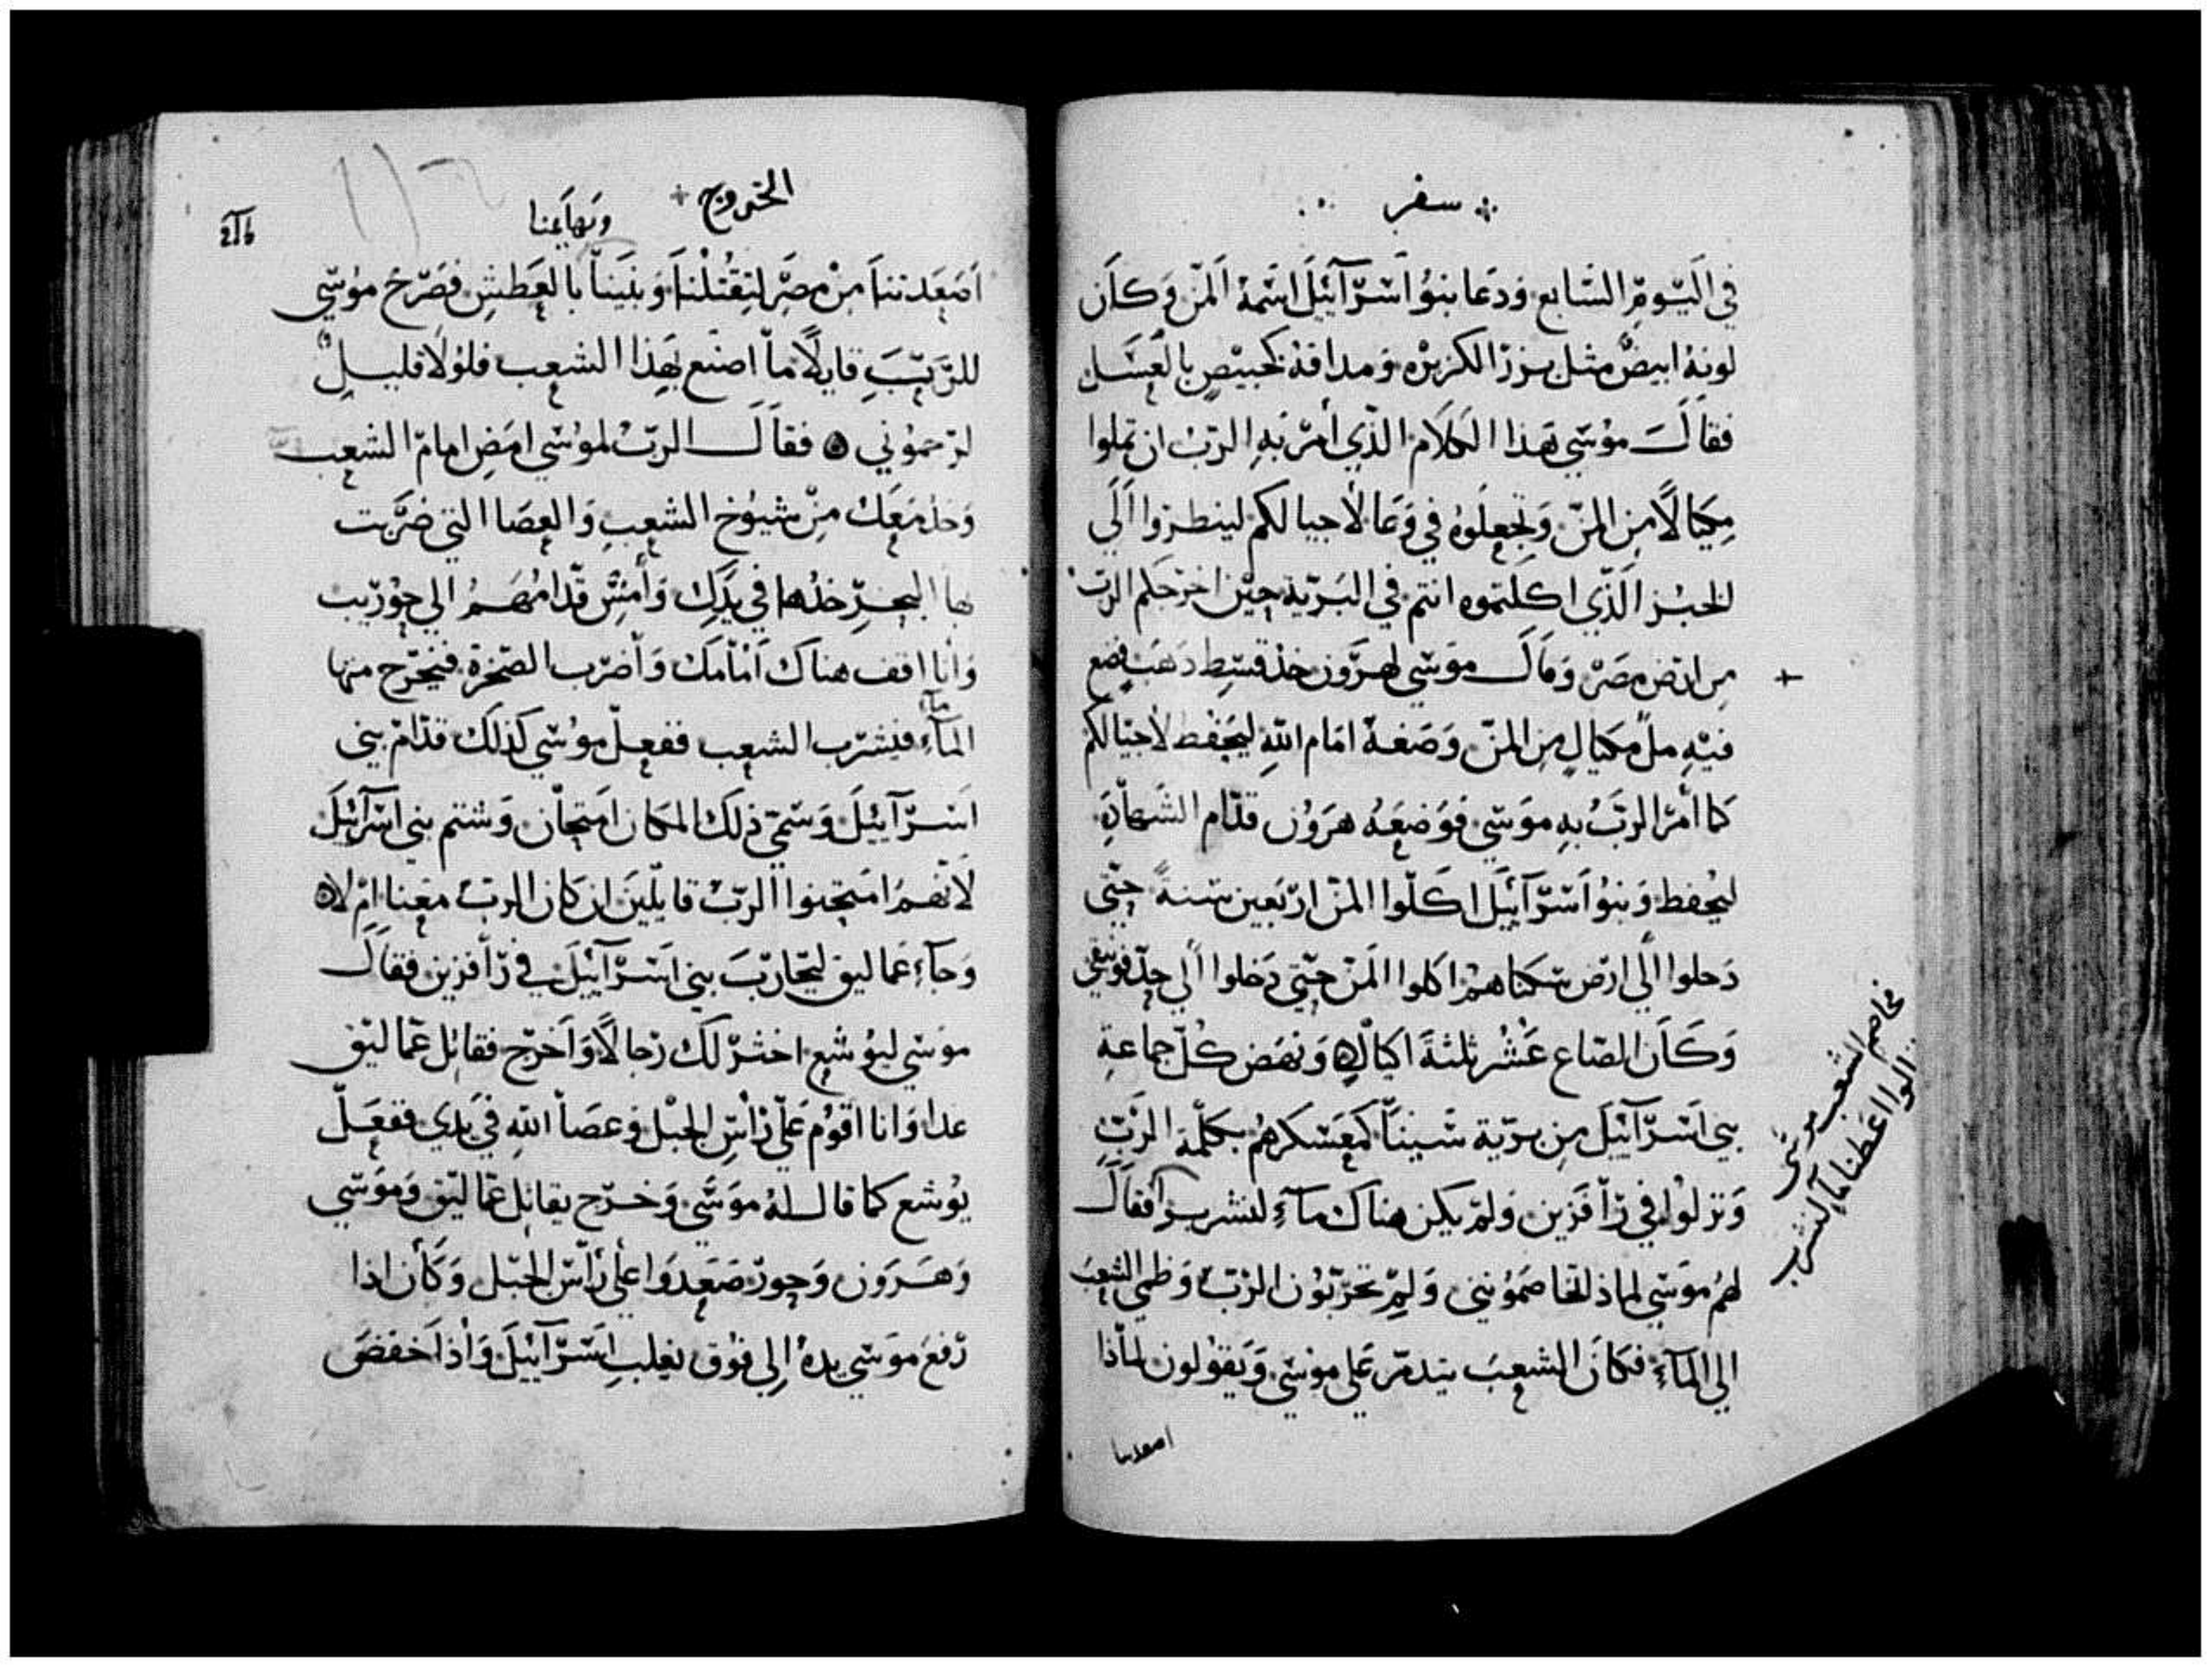 سفر
في اليوم السابع ودعا بنو اسرآئيل اسمه المن وكان
لونه ابيض مثل بزر الكزبره ومداقه كخبيص بالعسل
فقال موسي هذا الكلام الذي أمر به الرب ان تملوا
مكيالًا من المن وتجعلوه في وعا لاجيالكم لينظروا الي
الخبز الذي اكلتموه انتم في البرية حين اخرجكم الرب
من ارض مصر وقال موسي لهرون خذ قسط دهب وضع
فيه مل مكيال من المن وضعه امام الله ليحفظ لاجيالكم
كما أمر الرب به موسي فوضعه هرون قدام الشهادة
ليحفظ وبنو اسرآئيل اكلوا المن اربعين سنةً حتي
دخلوا الي ارض سكناهم اكلوا المن حتي دخلوا الي حد فونيقي
وكان الصاع عشر ثلثة اكيال ونهض كل جماعة
بني اسرآئيل من برية سينا كمعسكرهم بكلمة الرب
ونزلوا في رآفزين ولم يكن هناك مآء لنشربوا فقال
لهم موسي لماذا تخاصموني ولم تجربون الرب وظمي الشعب
الي المآء فكان الشعب يتدمر علي موسي ويقولون لماذا
اصعدتنا
فخاصم الشعب موسي
قالوا اعطنا مآ لنشرب
الخروج
وبهايمنا
اصعدتنا من مصر لتقتلنا وبنينا بالعطش فصرخ موسي
للرب قايلًا ما اصنع بهذا الشعب فلولا قليل
لرجموني ۞ فقال الرب لموسي امض امام الشعب
وخذ معك من شيوخ الشعب والعصا التي ضربت
بها البحر خذها في يدك وأمش قدامهم الي حوريب
وأنا اقف هناك أمامك وأضرب الصخرة فيخرج منها
المآء فيشرب الشعب ففعل موسي كذلك قدام بني
اسرآييل وسمي ذلك المكان امتحان وشتم بني اسرآئيل
لانهم امتحنوا الرب قايلين ان كان الرب معنا ام لا ۞
وجآء عماليق ليحارب بني اسرآئيل في رآفزين فقال
موسي ليوشع اختر لك رجالًا وأخرج فقاتل عماليق
غدا وانا اقوم علي رأس الجبل وعصا الله في يدي ففعل
يوشع كما قال له موسي وخرج يقاتل عماليق وموسي
وهرون وحور صعدوا علي رأس الجبل وكان اذا
رفع موسي يده إلي فوق يغلب اسرآئيل وأذا أخفض